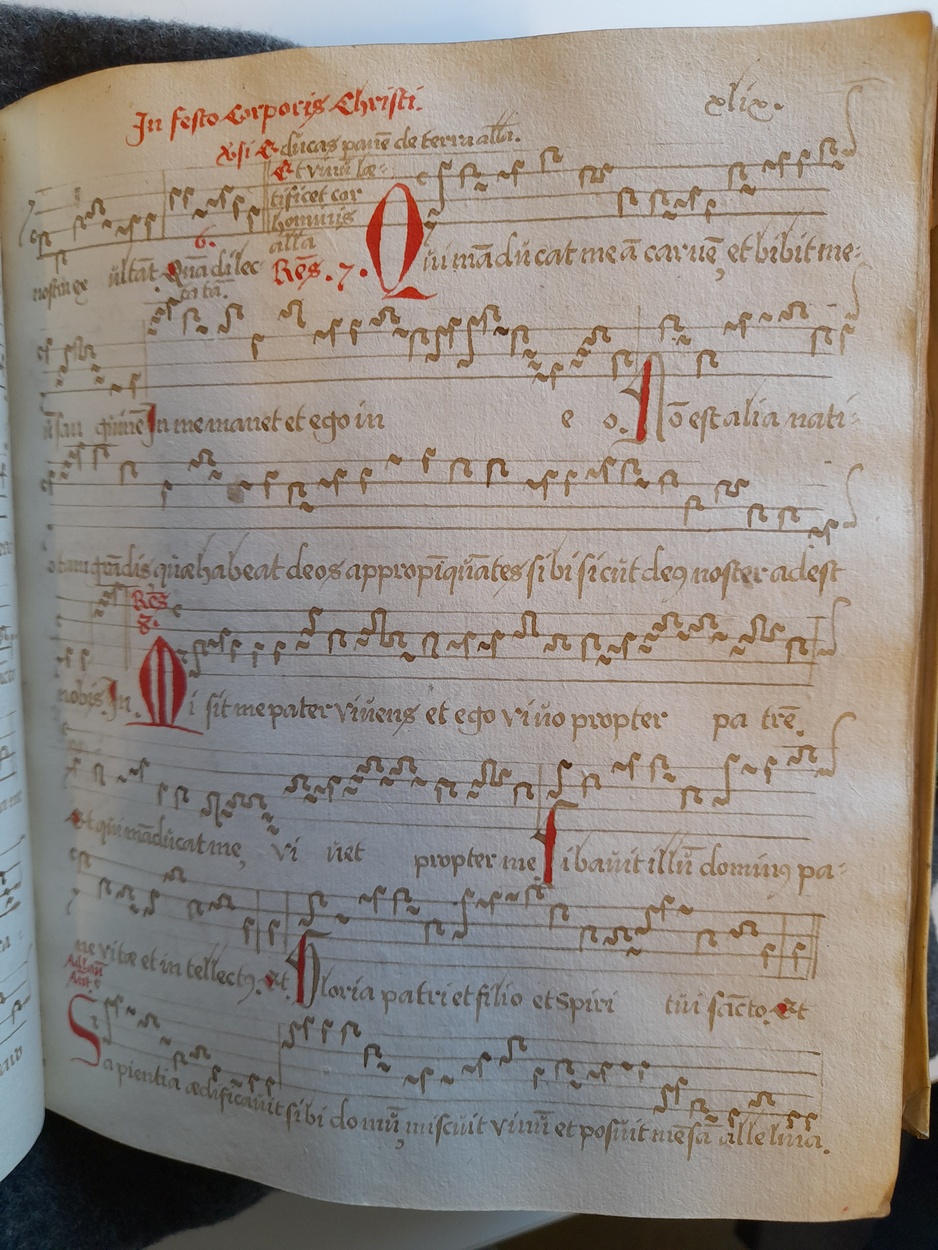 In festo Corporis Christi.
xlix.
Educas panē de terra allā.
Et vinū læ-
tificet cor
hominis
allā
6.
ūltāt Quā dilec
ta tā.
Res. 7. Qui māducat meā carnē, et bibit me-
In me manet et ego in e o. Nō est alia nati-
grādis quæ habeat deos appropīquātes sibi sicut deꝯ noster adest
Res
8.
nobis In. Misit me pater vivens et ego vivo propter pa trē.
Et qui māducat me, vi vet propter me Cibavit illū dominꝯ pa-
ne vitæ et intellectꝯ. Et Gloria patri et filio et spiri tui sācto. Et
Sapientia ædificavit sibi domū, miscuit vinū et posuit mēsā alleluia.